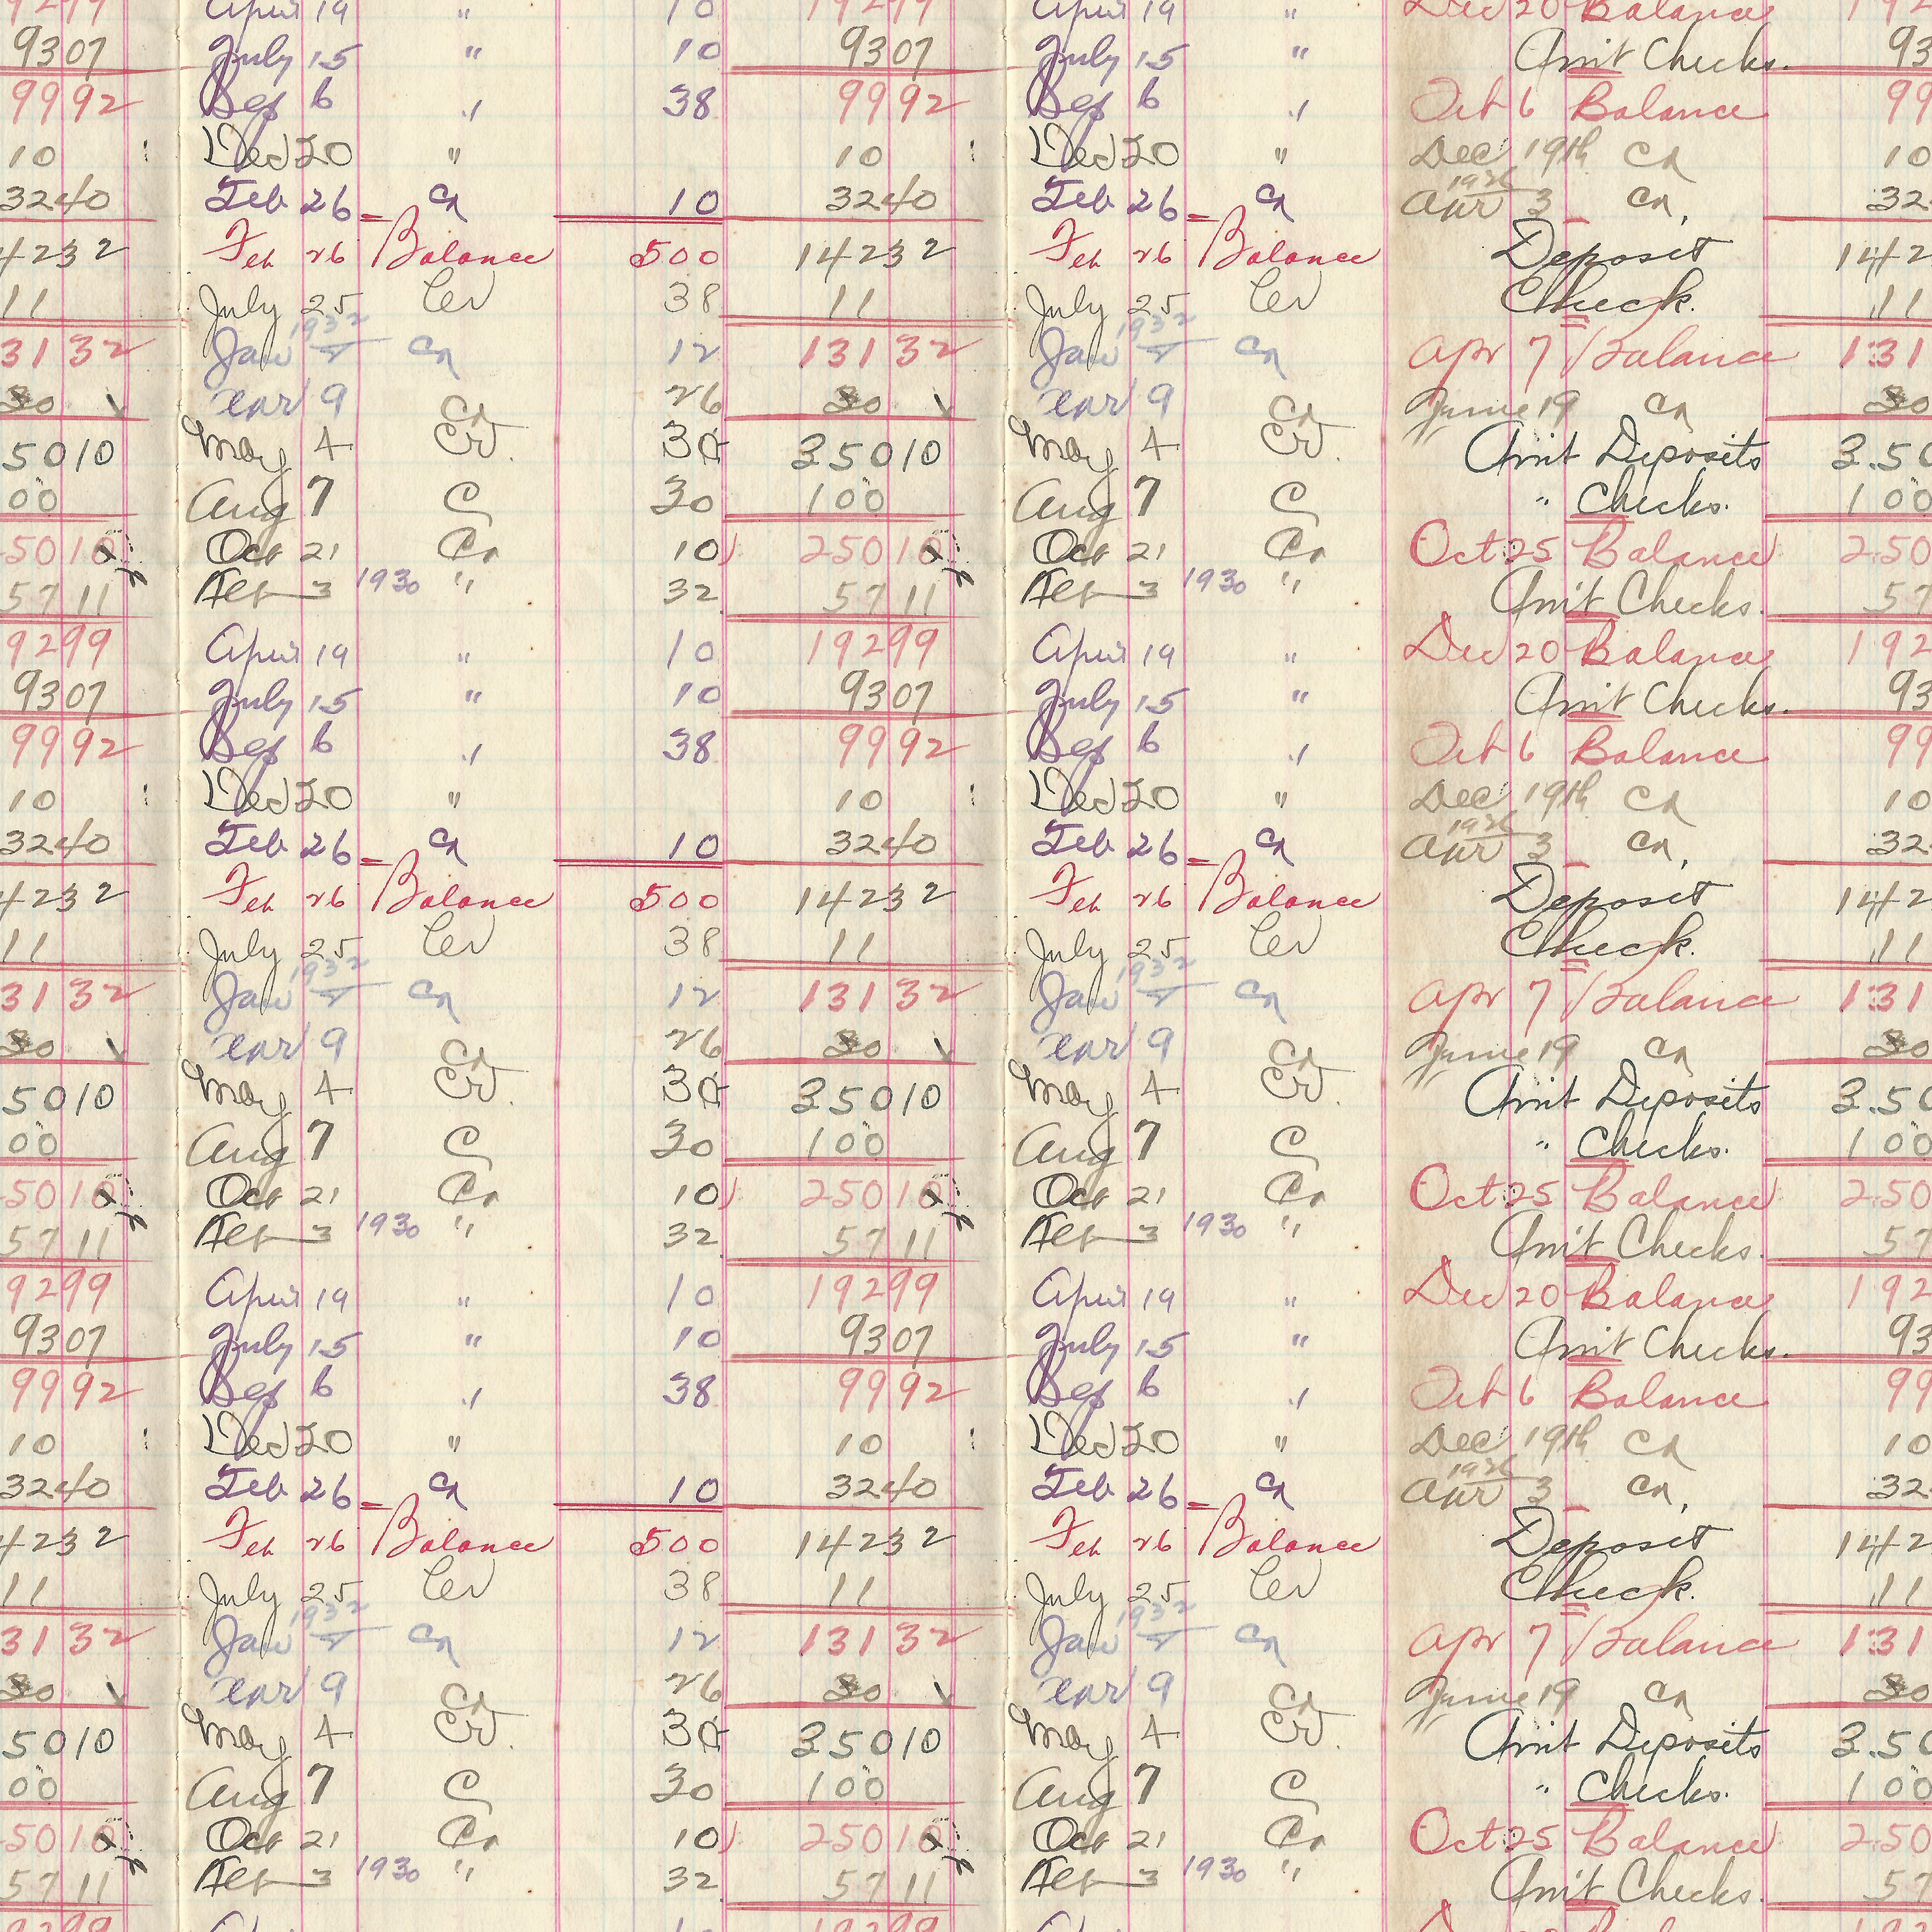 9299 Apr 19 " 10 19299 Apr 19 " Dec 20 Balance 192
9307 July 15 " 10 9307 July 15 " Amt Checks. 93
9992 Sep 6 " 38 9992 Sep 6 " Oct 6 Balance 99
10 Dec 20 " 10 Dec 20 " Dec 19th Cr 10
3240 Feb 26 Cr 10 3240 Feb 26 Cr Apr 3 Cr, 32
4232 Feb 26 Balance 500 14232 Feb 26 Balance Deposit 142
11 July 25 Cr 38 11 July 25 Cr Check. 11
3132 Jan 1932 Cr 12 13132 Jan 1932 Cr Apr 7 Balance 131
30 Mar 9 Cr 26 30 Mar 9 Cr June 19 Cr 30
5010 May 4 Cr. 30 35010 May 4 Cr. Amt Deposits 3.50
00 Aug 7 C 30 100 Aug 7 C " Checks. 100
5010 Oct 21 Cr 10 25010 Oct 21 Cr Oct 25 Balance 250
5711 Feb 3 1930 " 32 5711 Feb 3 1930 " Amt Checks. 57
9299 Apr 19 " 10 19299 Apr 19 " Dec 20 Balance 192
9307 July 15 " 10 9307 July 15 " Amt Checks. 93
9992 Sep 6 " 38 9992 Sep 6 " Oct 6 Balance 99
10 Dec 20 " 10 Dec 20 " Dec 19th Cr 10
3240 Feb 26 Cr 10 3240 Feb 26 Cr Apr 3 Cr, 32
4232 Feb 26 Balance 500 14232 Feb 26 Balance Deposit 142
11 July 25 Cr 38 11 July 25 Cr Check. 11
3132 Jan 1932 Cr 12 13132 Jan 1932 Cr Apr 7 Balance 131
30 Mar 9 Cr 26 30 Mar 9 Cr June 19 Cr 30
5010 May 4 Cr. 30 35010 May 4 Cr. Amt Deposits 3.50
00 Aug 7 C 30 100 Aug 7 C " Checks. 100
5010 Oct 21 Cr 10 25010 Oct 21 Cr Oct 25 Balance 250
5711 Feb 3 1930 " 32 5711 Feb 3 1930 " Amt Checks. 57
9299 Apr 19 " 10 19299 Apr 19 " Dec 20 Balance 192
9307 July 15 " 10 9307 July 15 " Amt Checks. 93
9992 Sep 6 " 38 9992 Sep 6 " Oct 6 Balance 99
10 Dec 20 " 10 Dec 20 " Dec 19th Cr 10
3240 Feb 26 Cr 10 3240 Feb 26 Cr Apr 3 Cr, 32
4232 Feb 26 Balance 500 14232 Feb 26 Balance Deposit 142
11 July 25 Cr 38 11 July 25 Cr Check. 11
3132 Jan 1932 Cr 12 13132 Jan 1932 Cr Apr 7 Balance 131
30 Mar 9 Cr 26 30 Mar 9 Cr June 19 Cr 30
5010 May 4 Cr. 30 35010 May 4 Cr. Amt Deposits 3.50
00 Aug 7 C 30 100 Aug 7 C " Checks. 100
5010 Oct 21 Cr 10 25010 Oct 21 Cr Oct 25 Balance 250
5711 Feb 3 1930 " 32 5711 Feb 3 1930 " Amt Checks. 57